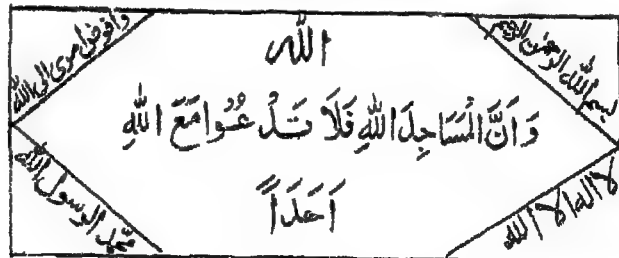 بسم الله الرحمن الرحيم
وافوض امری الی الله
الله
وَاَنَّ الْمَسَاجِدَ اللهِ فَلَا تَدْعُوْا مَعَ اللهِ
اَحَدَاً
لا اله الا الله
محمد الرسول الله